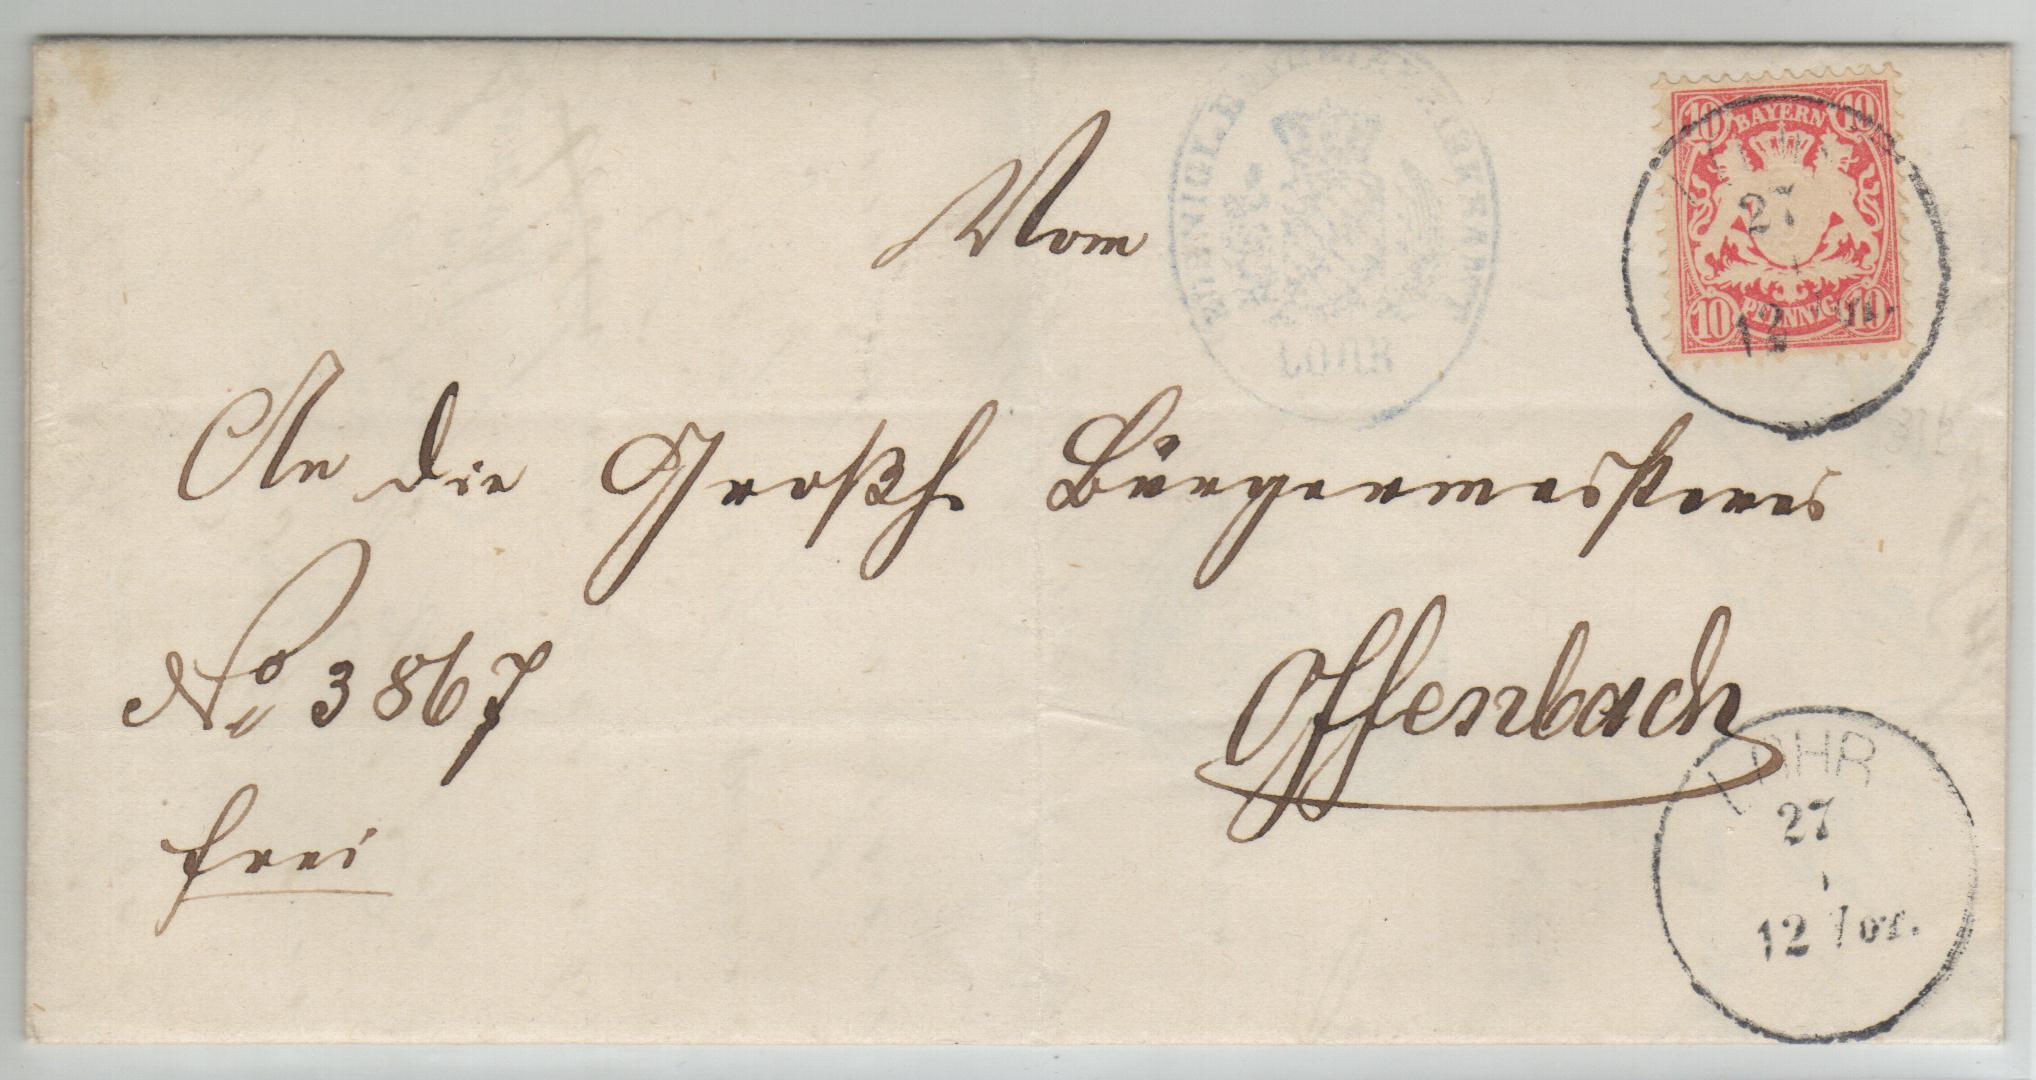 Vom
KOENIGL. BAYER. BEZIRKSAMT
LOHR
10 BAYERN 10
10 PFENNIG 10
27
12 Vor.
An die Großh. Bürgermeisterei
No 3867
Offenbach
frei
LOHR
27
12 Vor.